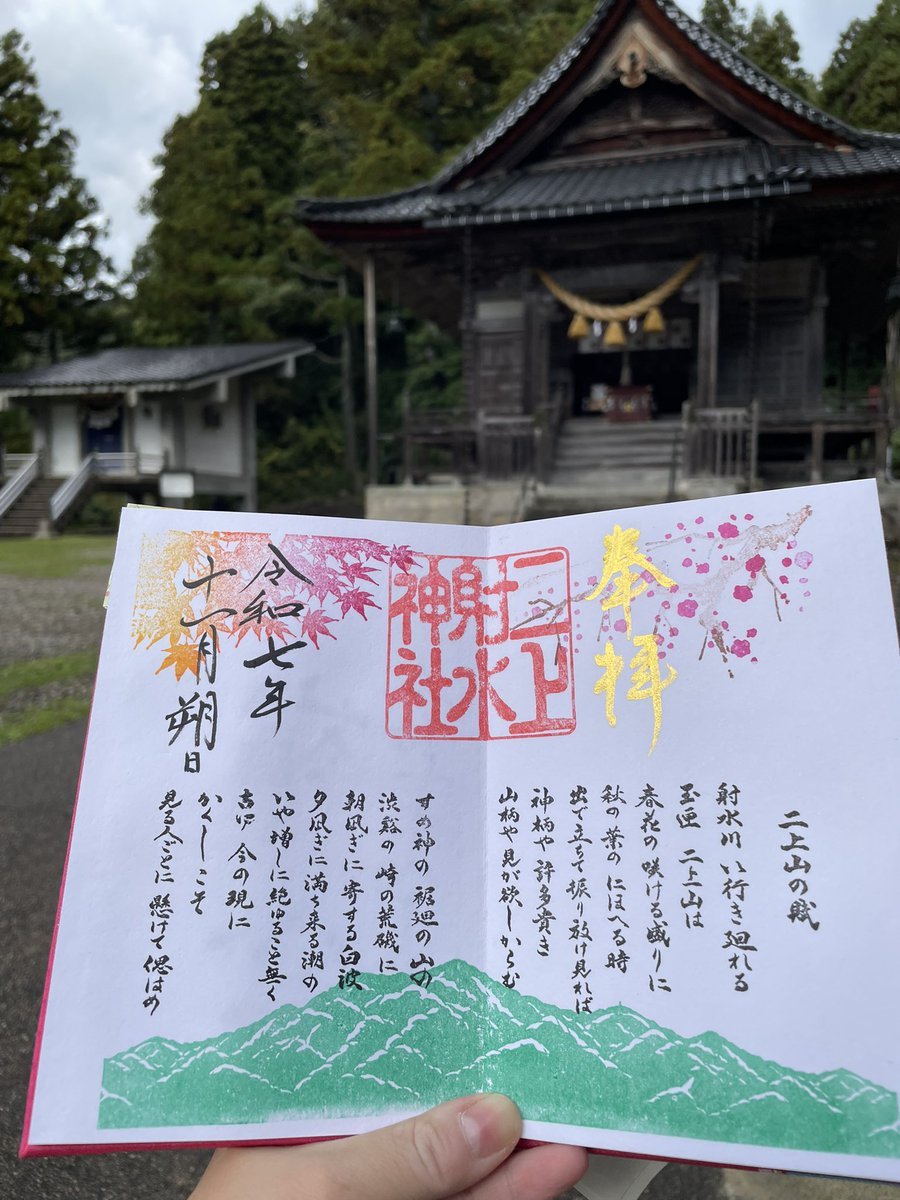 奉拝
二上
射水
神社
令和七年
十一月朔日
二上山の賦
射水川 い行き廻れる
玉匣 二上山は
春花の 咲ける盛りに
秋の葉の にほへる時
出で立ちて 振り放け見れば
神柄や 許多貴き
山柄や 見が欲しからむ
すめ神の 裾廻の山の
渋谿の 崎の荒磯に
朝凪ぎに 寄する白波
夕凪ぎに 満ち来る潮の
いや増しに 絶ゆること無く
古ゆ 今の現に
かくしこそ
見る人ごとに 懸けて偲はめ